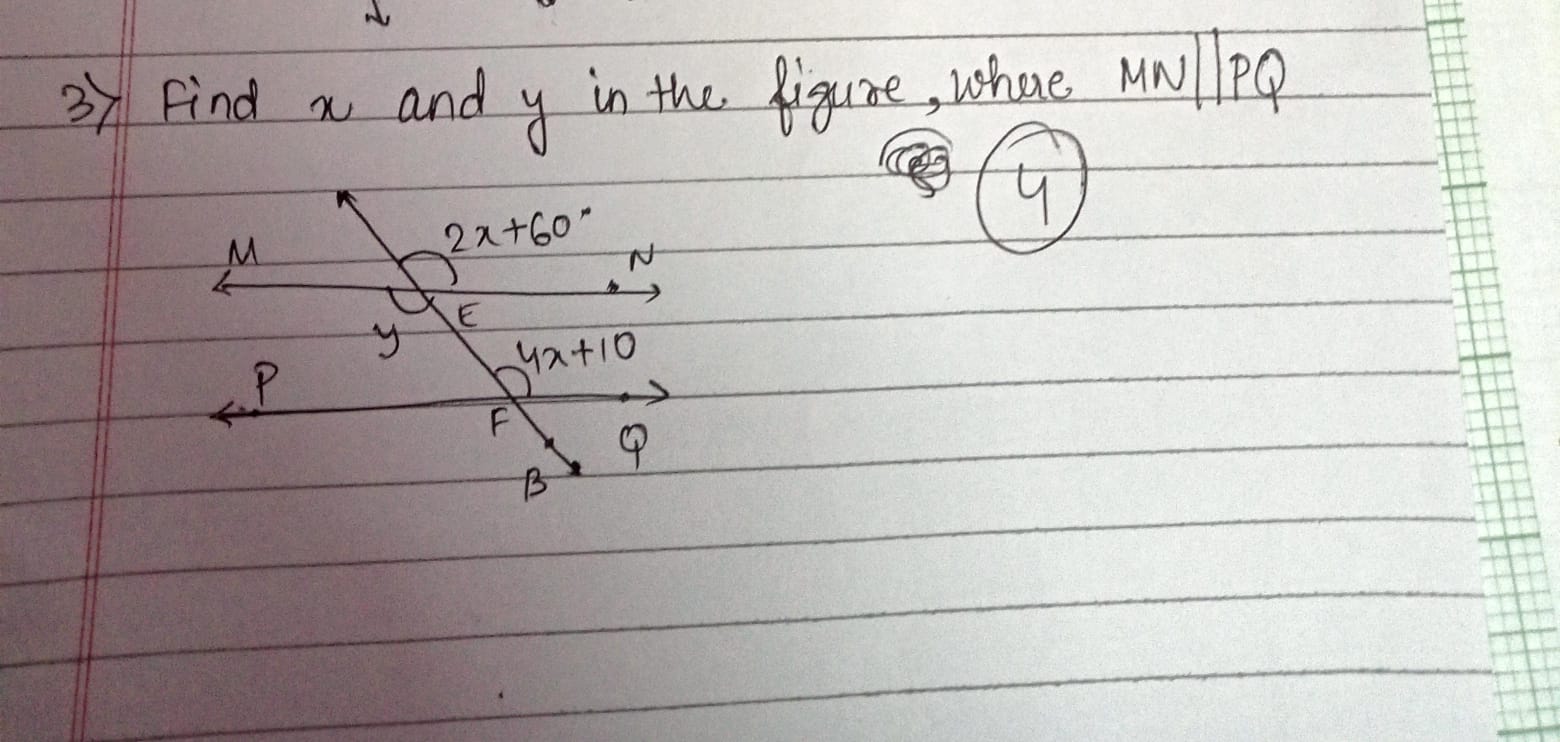 3) Find x and y in the figure, where MN||PQ
4
2x+60°
M
N
E
y
4x+10
P
F
Q
B